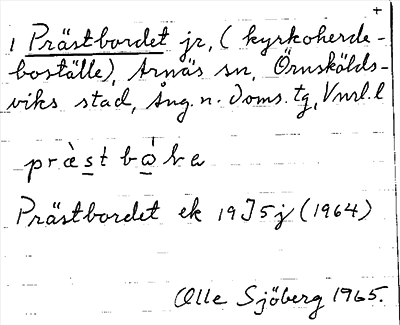 +
1 Prästbordet jr, (kyrkoherde-
boställe), Arnäs sn, Örnskölds-
viks stad, Ång. n. doms. tg, Vnrl. l
Prästbordet ek 19J5j (1964)
Olle Sjöberg 1965.